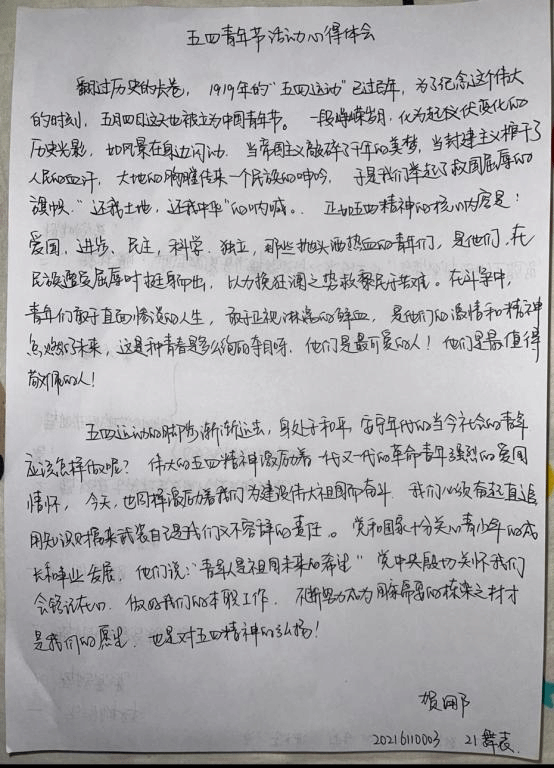 五四青年节活动心得体会
翻过历史的长卷，1919年的“五四运动”已过百年，为了纪念这个伟大
的时刻，五月四日这天也被立为中国青年节。一段峥嵘岁月，化为起伏变化的
历史光影，如风景在身边闪动。当帝国主义敲碎了千年的美梦，当封建主义榨干了
人民的血汗，大地的胸膛传来一个民族的呻吟，于是我们举起了救国屈辱的
旗帜.“还我土地，还我中华”的呐喊。. 正如五四精神的核心内容是：
爱国、进步、民主，科学、独立，那些抛头洒热血的青年们，是他们，在
民族遭受屈辱时挺身而出，以力挽狂澜之势救黎民于苦难。在斗争中，
青年们敢于直面惨淡的人生，敢于正视淋漓的鲜血，是他们的激情和精神
点燃了未来，这是种青春是多么绚丽夺目呀.他们是最可爱的人！他们是最值得
敬佩的人！
五四运动的脚步渐渐远去，身处于和平，安宁年代的当今社会的青年
应该怎样做呢？伟大的五四精神激励着一代又一代的革命青年强烈的爱国
情怀，今天，也同样激励着我们为建设伟大祖国而奋斗.我们必须奋起直追
用知识财富来武装自己是我们义不容辞的责任。党和国家十分关心青少年的成
长和事业发展，他们说：“青年人是祖国未来的希望”党中央殷切关怀我们
会铭记在心.做好我们的本职工作，不断努力成为国家需要的栋梁之材才
是我们的愿望.也是对五四精神的弘扬！
贺
20216110003 21舞表.